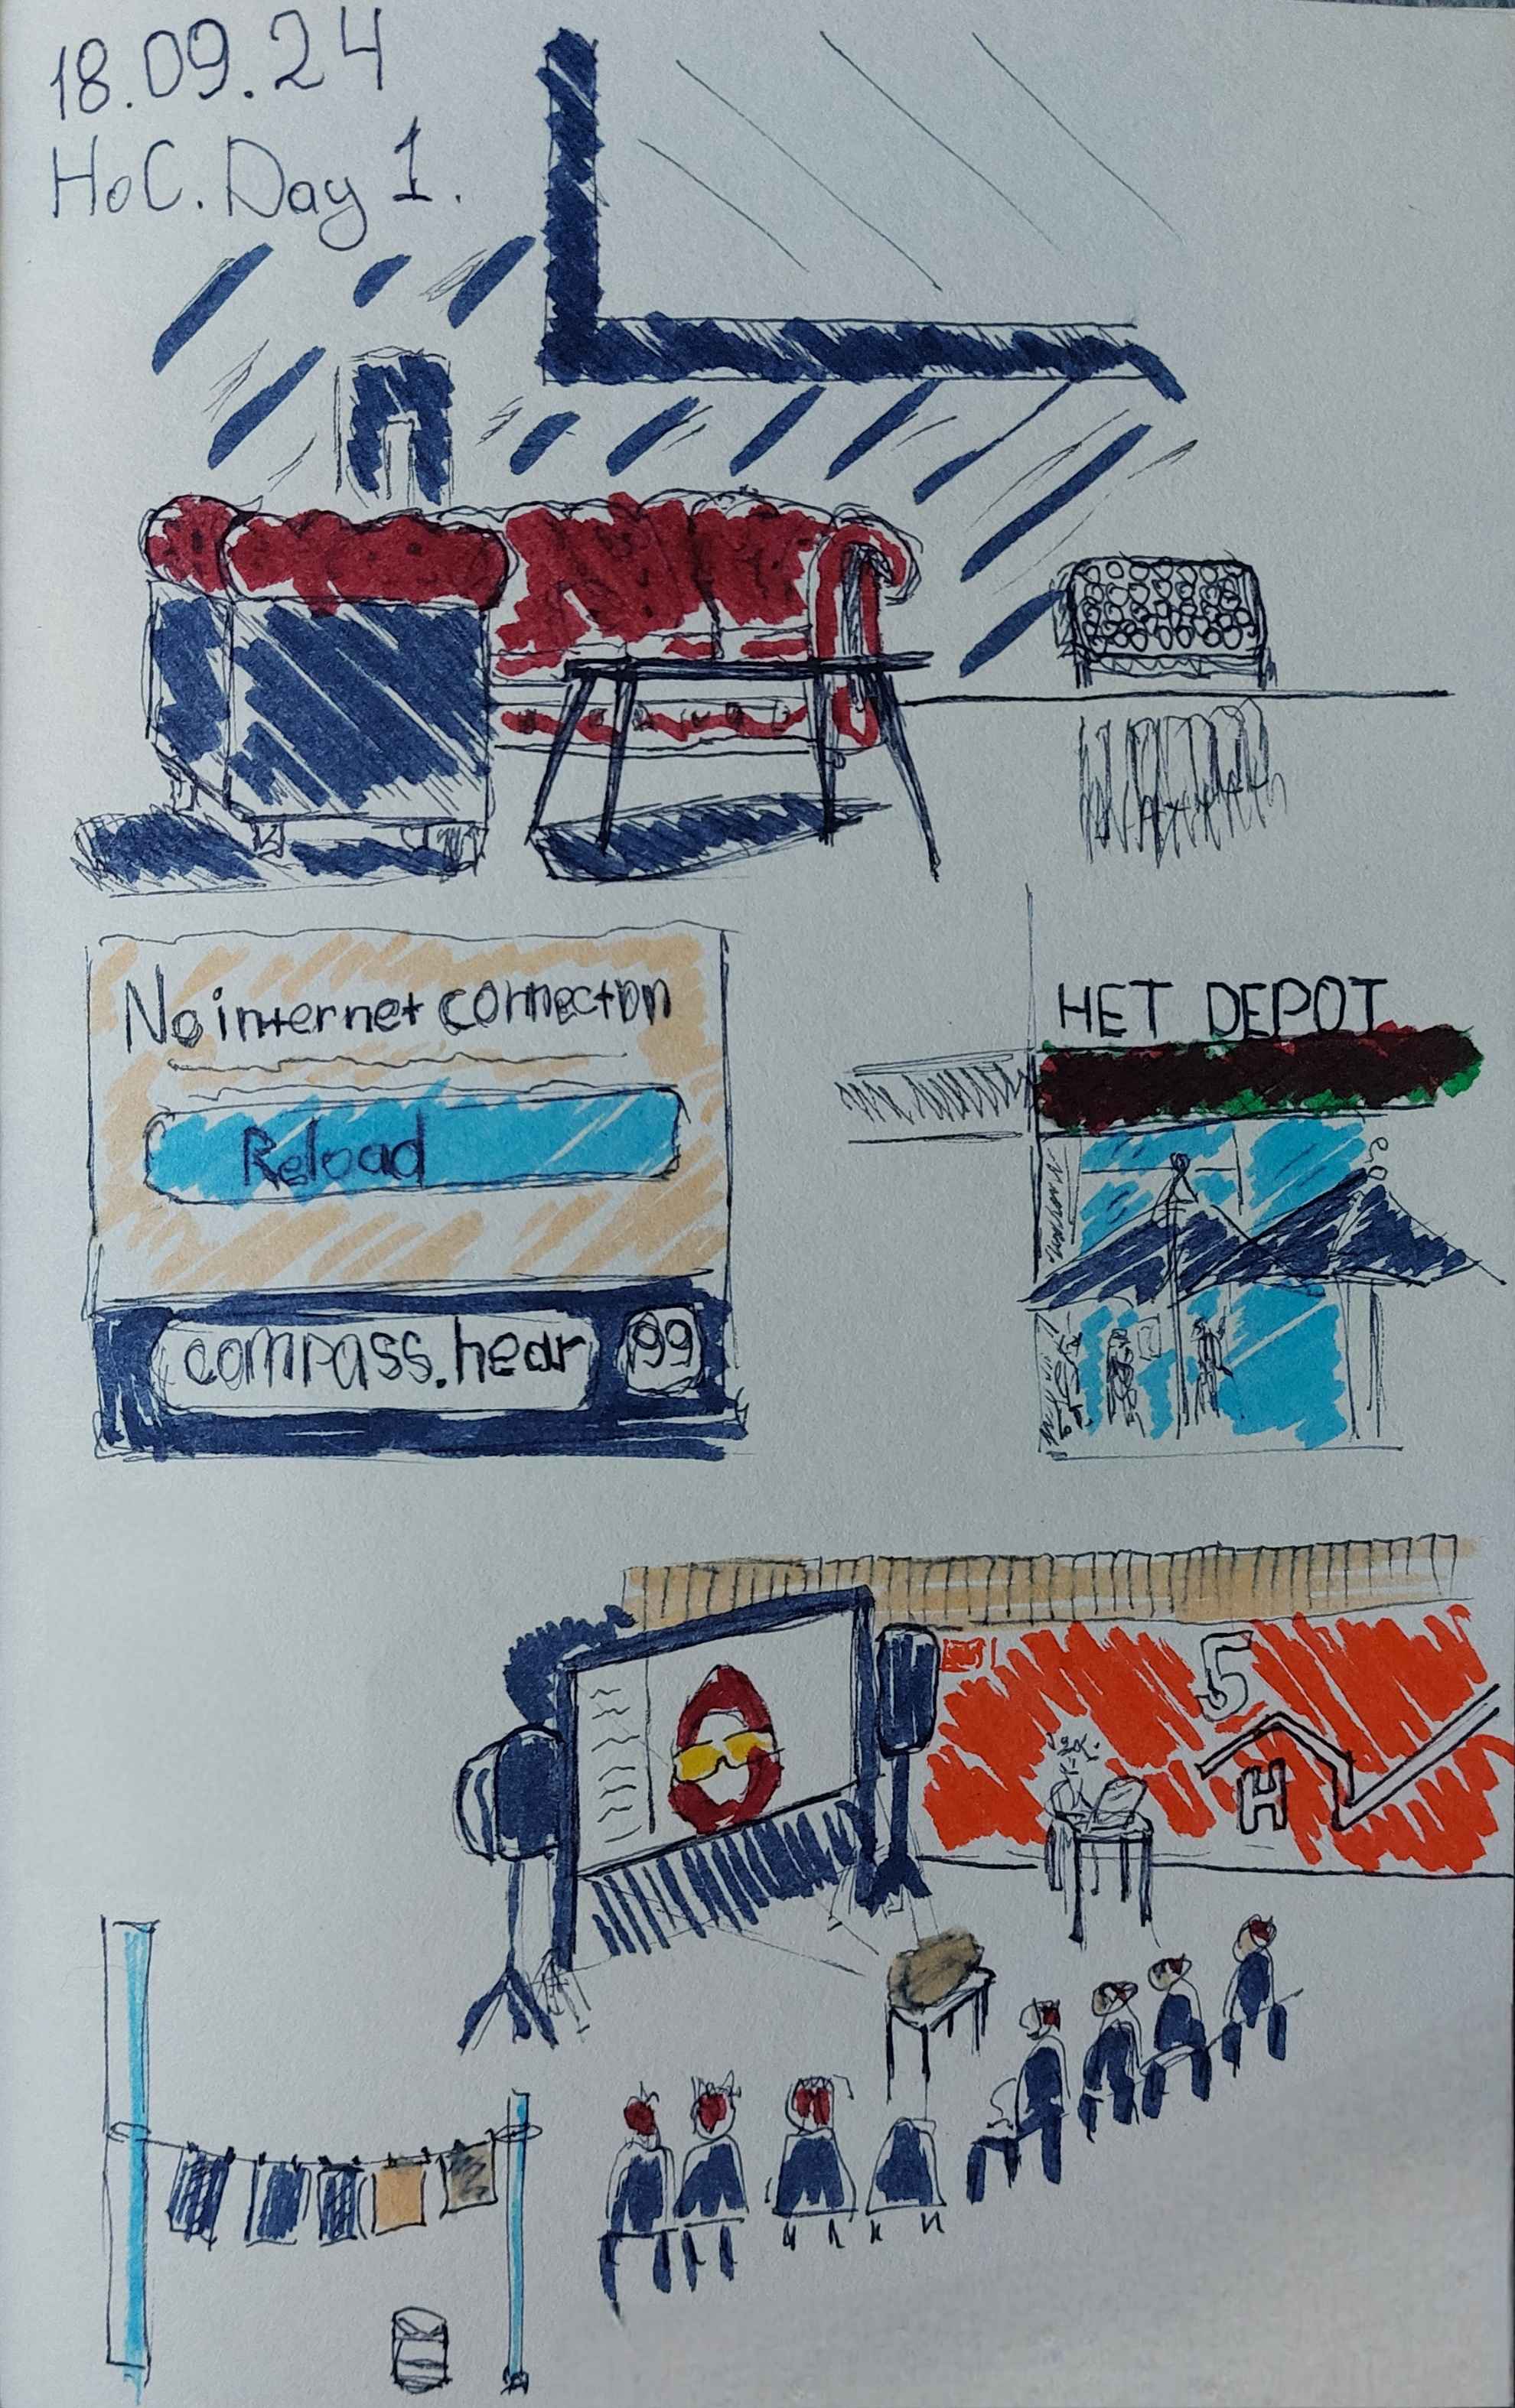 18.09.24
HoC. Day 1.
No internet connection
Reload
compass.hear
99
HET DEPOT
5
H